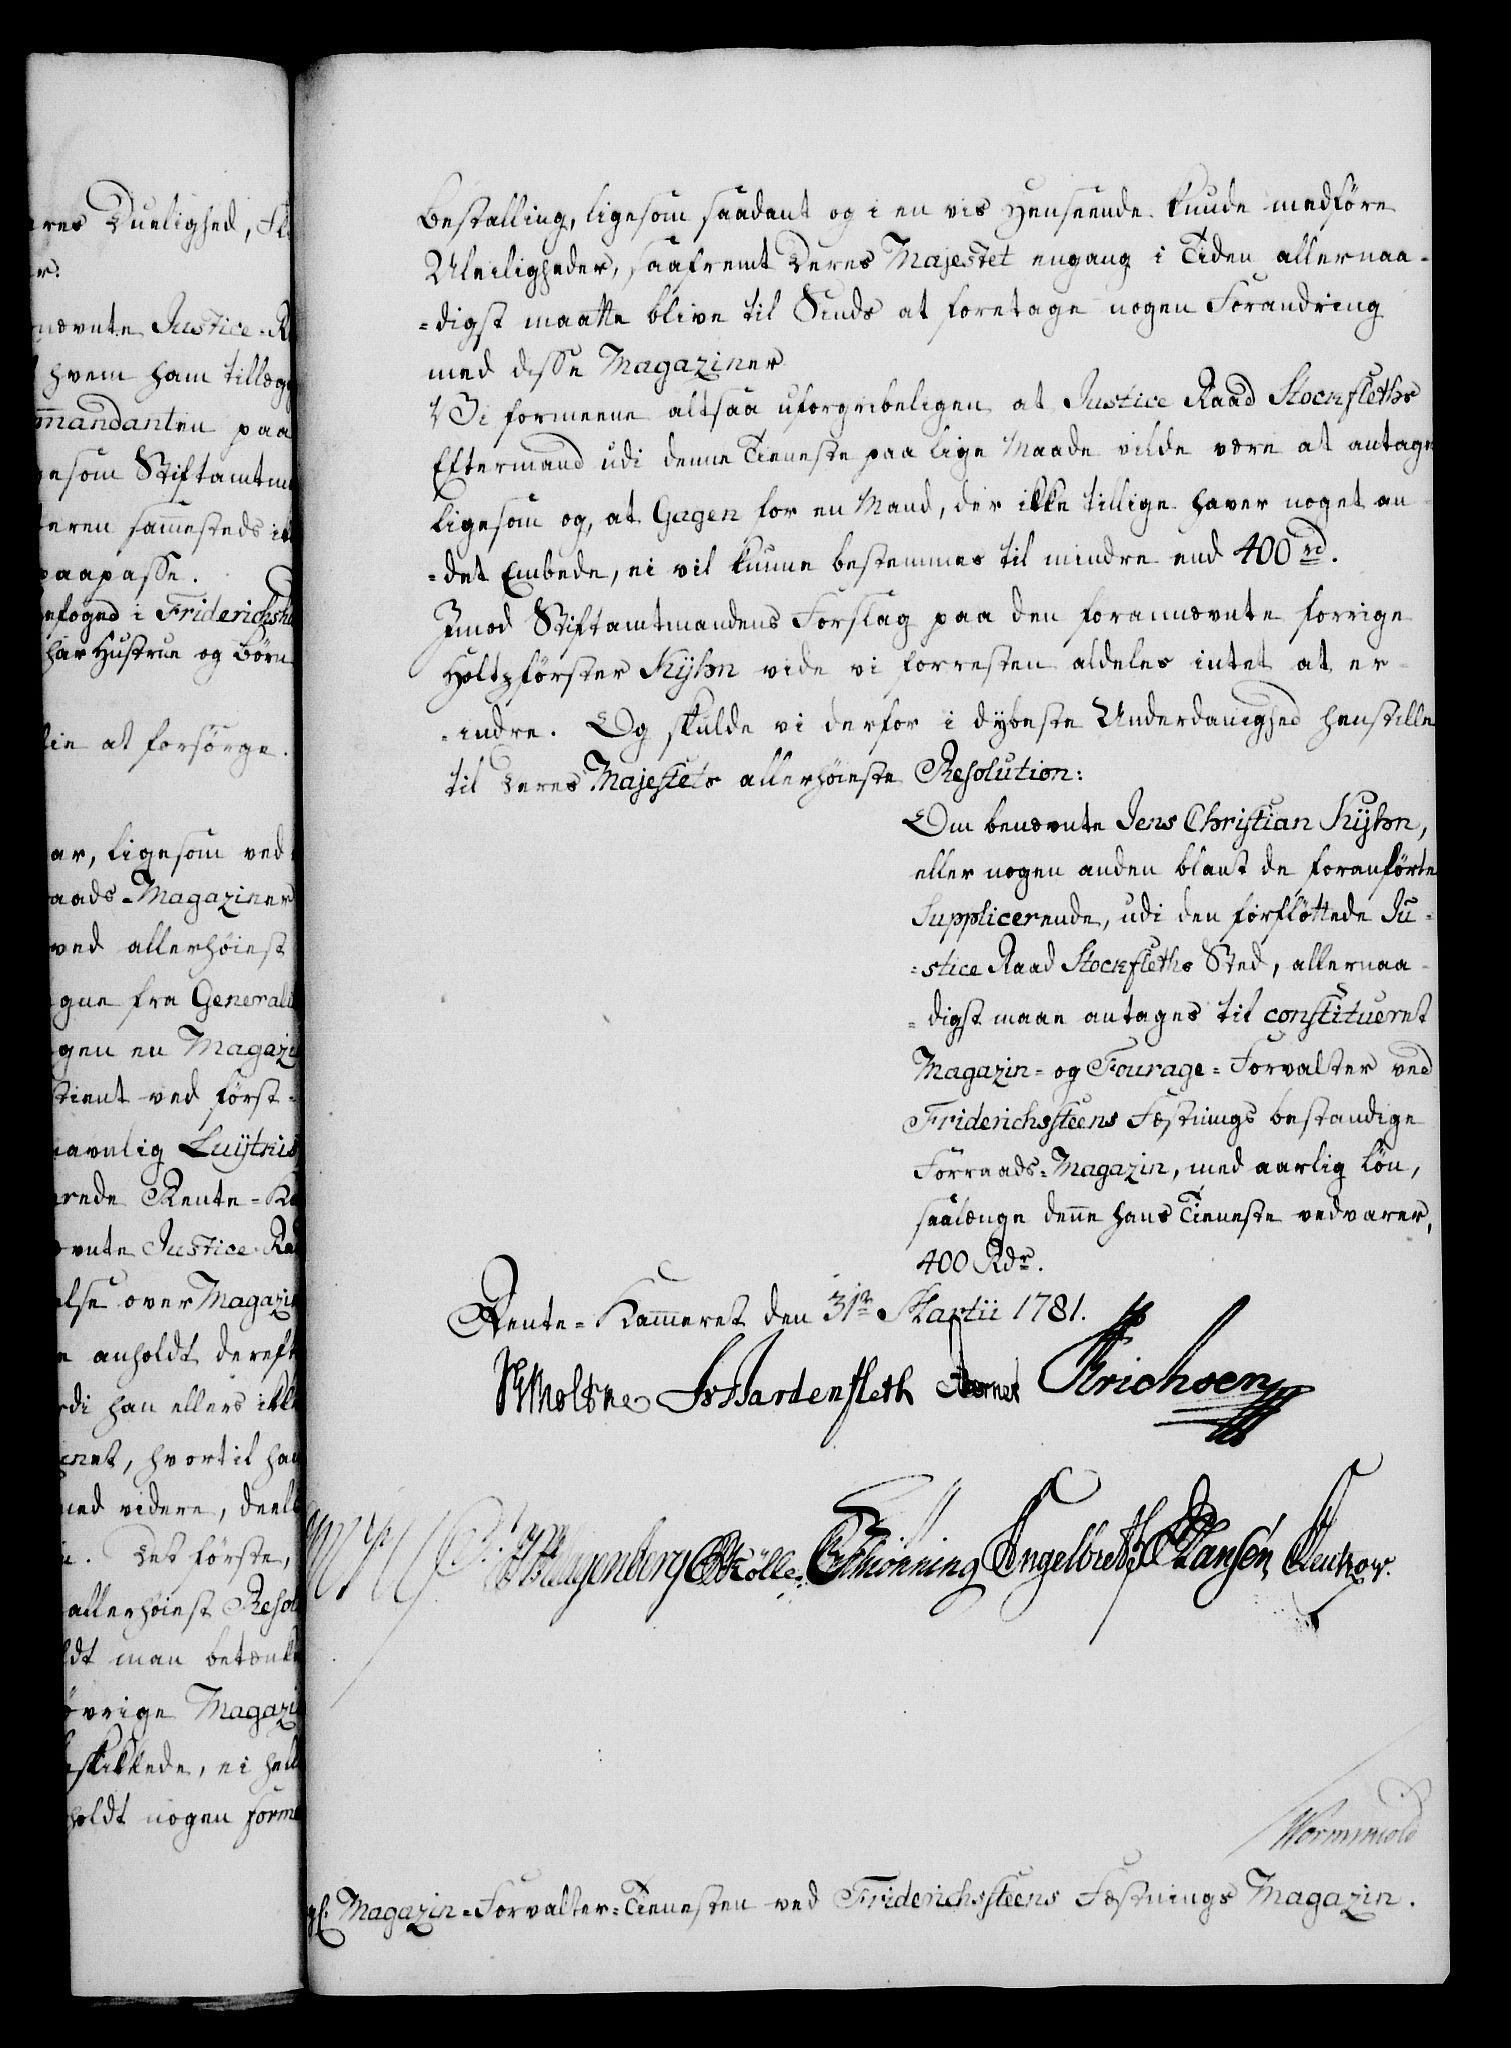 ares Duelighed, Fl
r.
nævnte Justice-R
hvem ham tillæg
mandanten paa
gesom Stiftamtm
teren sammesteds ik
paapasse.
efoged i Friderichsha
har Hustrue og Børn
lie at forsørge.
ar, ligesom ved
aads-Magaziner
ved allerhøiest
gne fra General
gen en Magazi
tient ved først-
navnlig
rede Rente-Ka
vnte Justice-Ra
else over Magazi
anholdt dereft
di han ellers ikk
net, hvortil han
med videre, deel
Det første,
allerhøiest Resol
ldt man betænk
øvrige Magazi
skikkede, ei hell
holdt nogen form
Bestalling, ligesom saadant og i en vis Henseende kunde medføre
Uleiligheder, saafremt Deres Majestet engang i Tiden allernaa-
=digst maatte blive til Sinds at foretage nogen Forandring
med disse Magaziner
Vi formeene altsaa uforgribeligen at Justice Raad Stockfleths
Eftermand udi denne Tieneste paa lige Maade vilde være at antage
ligesom og, at Gagen for en Mand, der ikke tillige haver noget an-
=det Embede, ei vil kunne bestemmes til mindre end 400 rd.
Imod Stiftamtmandens Forslag paa den forannævnte forrige
Holtzförster Kyhn vide vi forresten aldeles intet at er-
-indre. Og skulde vi derfor i dybeste Underdanighed henstille
til Deres Majestets allerhøieste Resolution:
Om benævnte Jens Christian Kyhn,
eller nogen anden blant de foranførte
Supplicerende, udi den forfløttede Ju-
=stice Raad Stockfleths Sted, allernaa-
=digst maae antages til constitueret
Magazin- og Fourage-Forvalter ved
Friderichssteens Fæstnings bestandige
Forraads-Magazin, med aarlig Løn,
saalænge denne hans Tieneste vedvarer,
400 Rdr.
Rente-Kammeret den 31te Martii 1781.
Moltke Hardenfleth Erichsen
Wagenberg Møller Schiønning Engelbreth Hansen
Wormskiold
Magazin-Forvalter-Tienesten ved Friderichssteens Fæstnings Magazin.